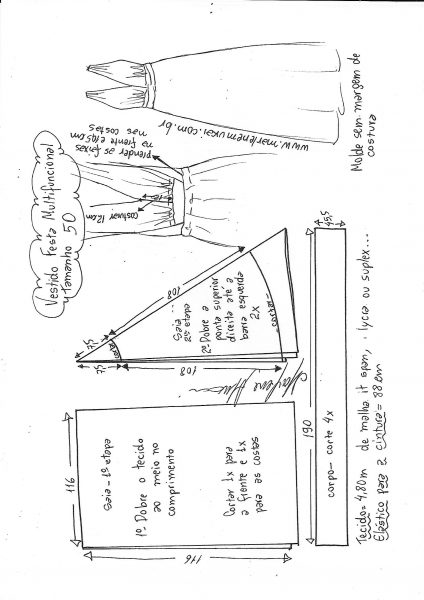 Vestido Festa Multifuncional
tamanho 50
www.marlenemukai.com.br
Molde sem margem de
costura
prender as faixas
na frente e
nas costas
costurar 12cm
108
7,5
7,5
108
cortar
cortar
Saia
2ª etapa
2º Dobre a
ponta superior
direita até a
barra esquerda
2x
Marlene Mukai
116
116
Saia - 1ª etapa
1º Dobre o tecido
ao meio no
comprimento
Cortar 1x para
a frente e 1x
para as costas
190
corpo - corte 4x
Tecido = 4,80m de malha it span, lycra ou suplex...
Elástico para a cintura = 88cm